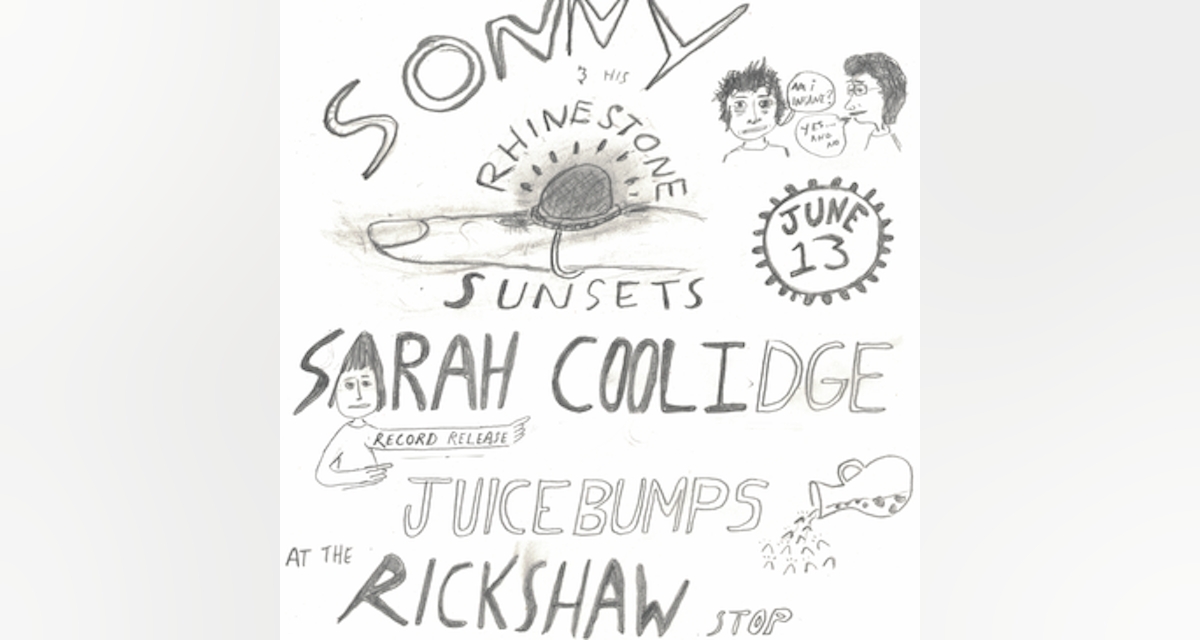 SONNY
& HIS
RHINESTONE
SUNSETS
AM I
INSANE?
YES...
AND
NO
JUNE
13
SARAH COOLIDGE
RECORD RELEASE
JUICEBUMPS
AT THE
RICKSHAW STOP